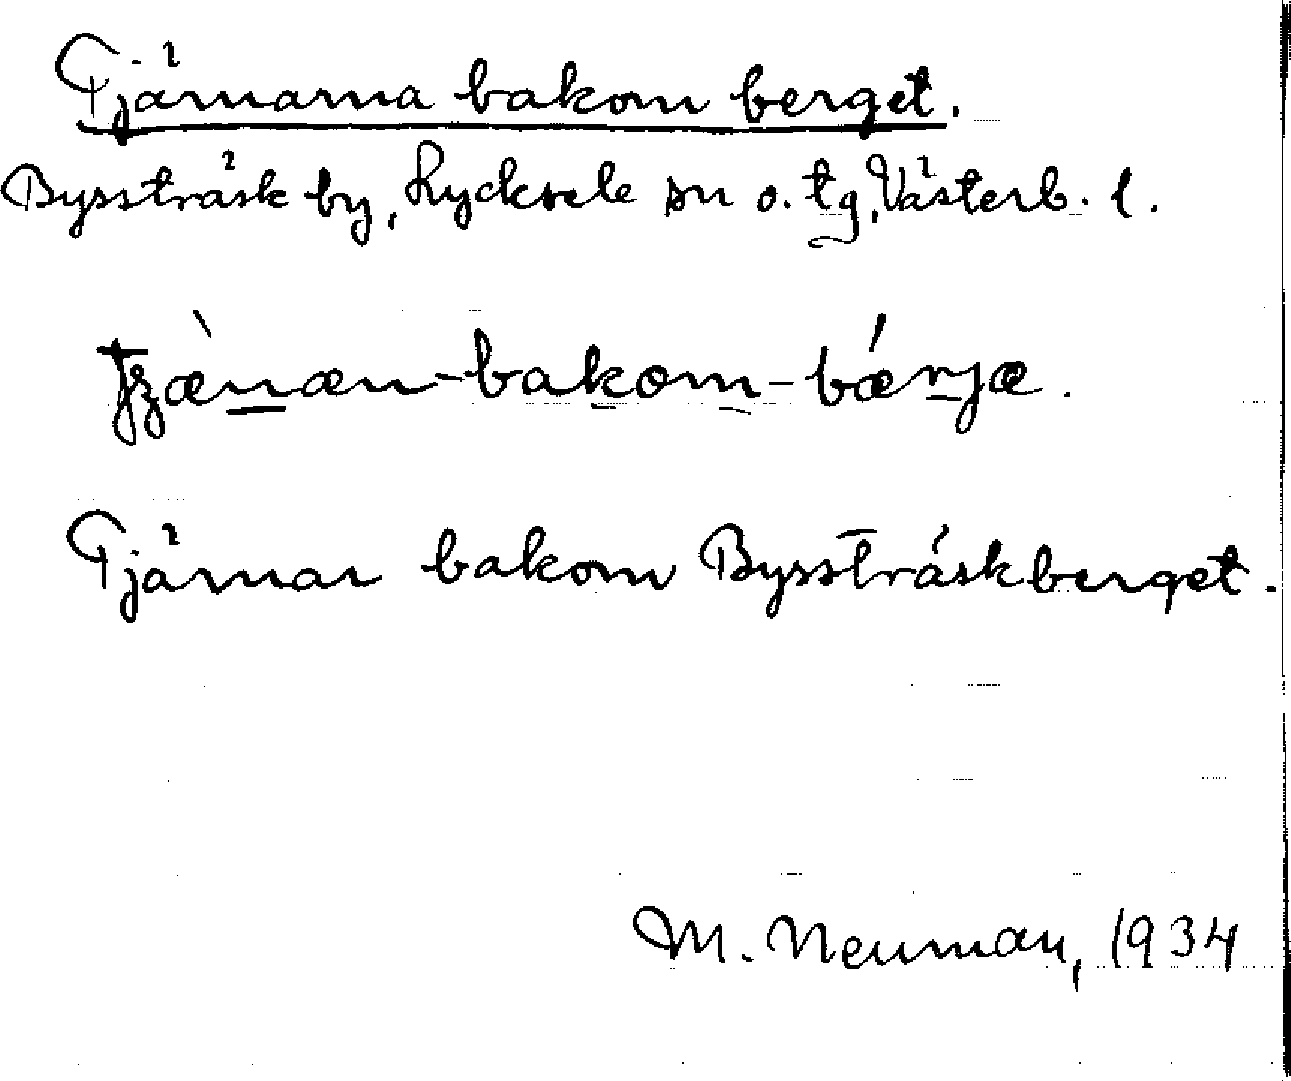 Tjärnarna bakom berget.
Byssträsk by, Lycksele sn o. tg, Västerb. l.
bakom
Tjärnar bakom Byssträskberget.
M. Neuman, 1934